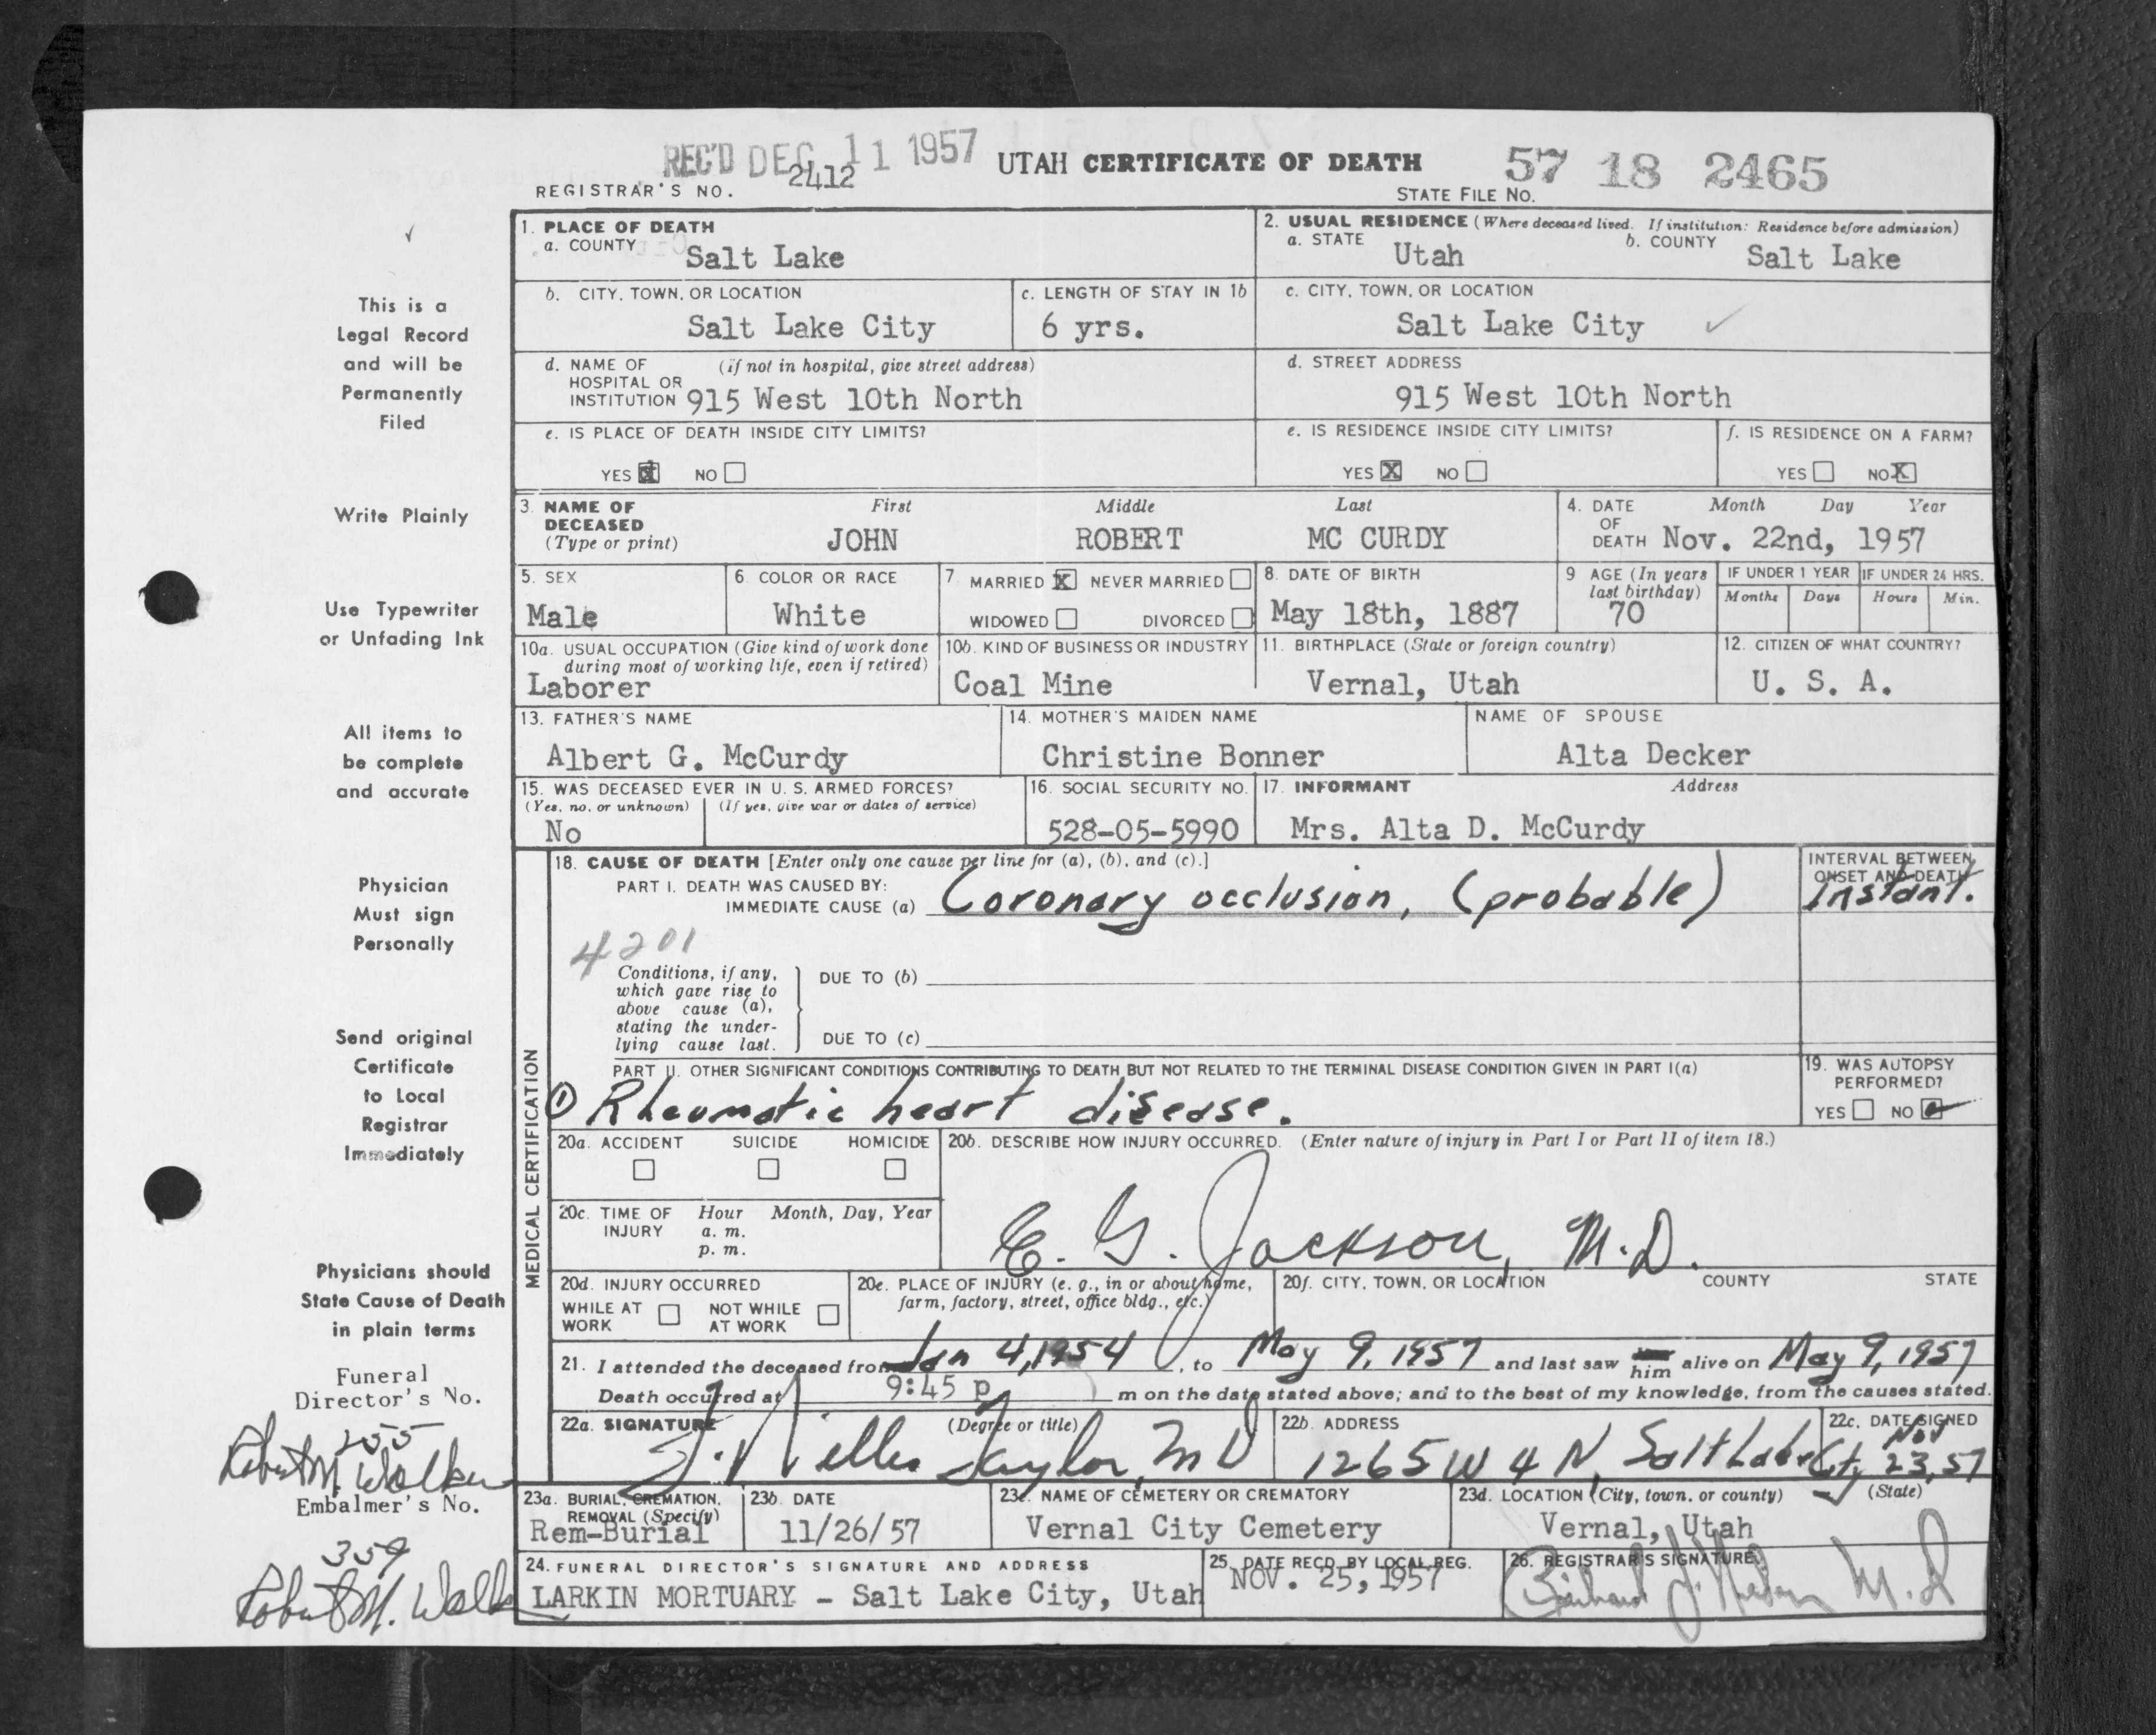 REC'D DEC 11 1957 UTAH CERTIFICATE OF DEATH 57 18 2465
REGISTRAR'S NO. 2412 STATE FILE NO.
This is a
Legal Record
and will be
Permanently
Filed
Write Plainly
Use Typewriter
or Unfading Ink
All items to
be complete
and accurate
Physician
Must sign
Personally
Send original
Certificate
to Local
Registrar
Immediately
Physicians should
State Cause of Death
in plain terms
Funeral
Director's No.
255
Robert M. Walker
Embalmer's No.
359
Robert M. Walk
1. PLACE OF DEATH
a. COUNTY Salt Lake
2. USUAL RESIDENCE (Where deceased lived. If institution: Residence before admission)
a. STATE Utah b. COUNTY Salt Lake
b. CITY, TOWN, OR LOCATION Salt Lake City
c. LENGTH OF STAY IN 1b 6 yrs.
c. CITY, TOWN, OR LOCATION Salt Lake City
d. NAME OF (if not in hospital, give street address)
HOSPITAL OR
INSTITUTION 915 West 10th North
d. STREET ADDRESS
915 West 10th North
e. IS PLACE OF DEATH INSIDE CITY LIMITS?
YES X NO
e. IS RESIDENCE INSIDE CITY LIMITS?
YES X NO
f. IS RESIDENCE ON A FARM?
YES NO X
3. NAME OF DECEASED (Type or print)
First Middle Last
JOHN ROBERT MC CURDY
4. DATE OF DEATH Month Day Year
Nov. 22nd, 1957
5. SEX
Male
6. COLOR OR RACE
White
7. MARRIED X NEVER MARRIED
WIDOWED DIVORCED
8. DATE OF BIRTH
May 18th, 1887
9 AGE (In years last birthday)
70
IF UNDER 1 YEAR IF UNDER 24 HRS.
Months Days Hours Min.
10a. USUAL OCCUPATION (Give kind of work done
during most of working life, even if retired)
Laborer
10b. KIND OF BUSINESS OR INDUSTRY
Coal Mine
11. BIRTHPLACE (State or foreign country)
Vernal, Utah
12. CITIZEN OF WHAT COUNTRY?
U. S. A.
13. FATHER'S NAME
Albert G. McCurdy
14. MOTHER'S MAIDEN NAME
Christine Bonner
NAME OF SPOUSE
Alta Decker
15. WAS DECEASED EVER IN U. S. ARMED FORCES?
(Yes, no, or unknown) (If yes, give war or dates of service)
No
16. SOCIAL SECURITY NO.
528-05-5990
17. INFORMANT Address
Mrs. Alta D. McCurdy
MEDICAL CERTIFICATION
18. CAUSE OF DEATH [Enter only one cause per line for (a), (b), and (c).]
PART I. DEATH WAS CAUSED BY:
IMMEDIATE CAUSE (a) Coronary occlusion, (probable)
INTERVAL BETWEEN
ONSET AND DEATH
Instant.
4201
Conditions, if any,
which gave rise to
above cause (a),
stating the under-
lying cause last.
DUE TO (b)
DUE TO (c)
PART II. OTHER SIGNIFICANT CONDITIONS CONTRIBUTING TO DEATH BUT NOT RELATED TO THE TERMINAL DISEASE CONDITION GIVEN IN PART I(a)
① Rheumatic heart disease.
19. WAS AUTOPSY
PERFORMED?
YES NO
20a. ACCIDENT SUICIDE HOMICIDE
20b. DESCRIBE HOW INJURY OCCURRED. (Enter nature of injury in Part I or Part II of item 18.)
20c. TIME OF INJURY Hour Month, Day, Year
a. m.
p. m.
E. G. Jackson, M.D.
20d. INJURY OCCURRED
WHILE AT WORK NOT WHILE AT WORK
20e. PLACE OF INJURY (e. g., in or about home,
farm, factory, street, office bldg., etc.)
20f. CITY, TOWN, OR LOCATION COUNTY STATE
21. I attended the deceased from Jan 4, 1954, to May 9, 1957 and last saw him alive on May 9, 1957
Death occurred at 9:45 p m on the date stated above; and to the best of my knowledge, from the causes stated.
22a. SIGNATURE (Degree or title)
Taylor, MD
22b. ADDRESS
1265 W 4 N, Salt Lake City
22c. DATE SIGNED
Nov 23, 57
23a. BURIAL, CREMATION,
REMOVAL (Specify)
Rem-Burial
23b. DATE
11/26/57
23c. NAME OF CEMETERY OR CREMATORY
Vernal City Cemetery
23d. LOCATION (City, town, or county) (State)
Vernal, Utah
24. FUNERAL DIRECTOR'S SIGNATURE AND ADDRESS
LARKIN MORTUARY - Salt Lake City, Utah
25. DATE RECD. BY LOCAL REG.
NOV. 25, 1957
26. REGISTRAR'S SIGNATURE
M.D